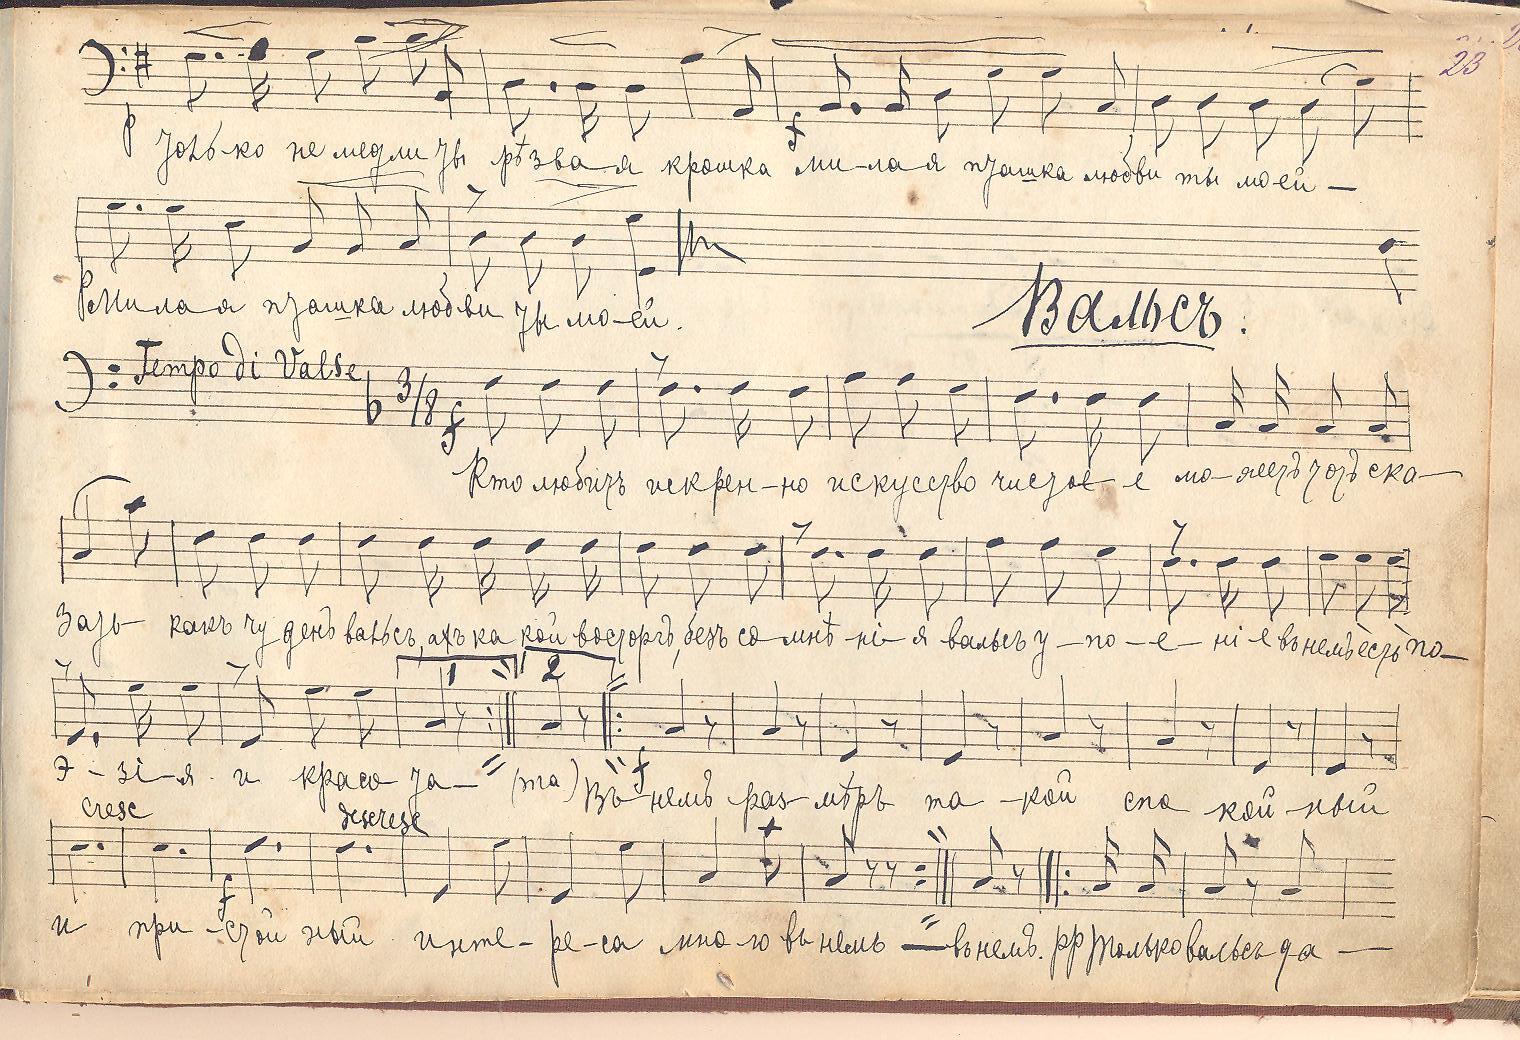 23
р только не медли ты рѣзва-я крошка f ми-ла-я пташка любви ты мо-ей –
р Мила-я пташка любви ты мо-ей.
Вальсъ.
Tempo di Valse 3/8 f
Кто любитъ искрен-но искусство чистое е мо-жетъ тотъ ска-
зать- какъ чу денъ вальсъ, ахъ ка кой восторгъ, безъ со-мнѣ-ні-я вальсъ у-по-е-ні е въ немъ есть по-
1 2
э-зі-я и красо та- (та) Въ f немъ раз-мѣръ та-кой спо кой-ный
cresc decresc
и при-f стой ный инте-ре-са мно-го въ немъ – въ немъ. pp Только вальсъ да –